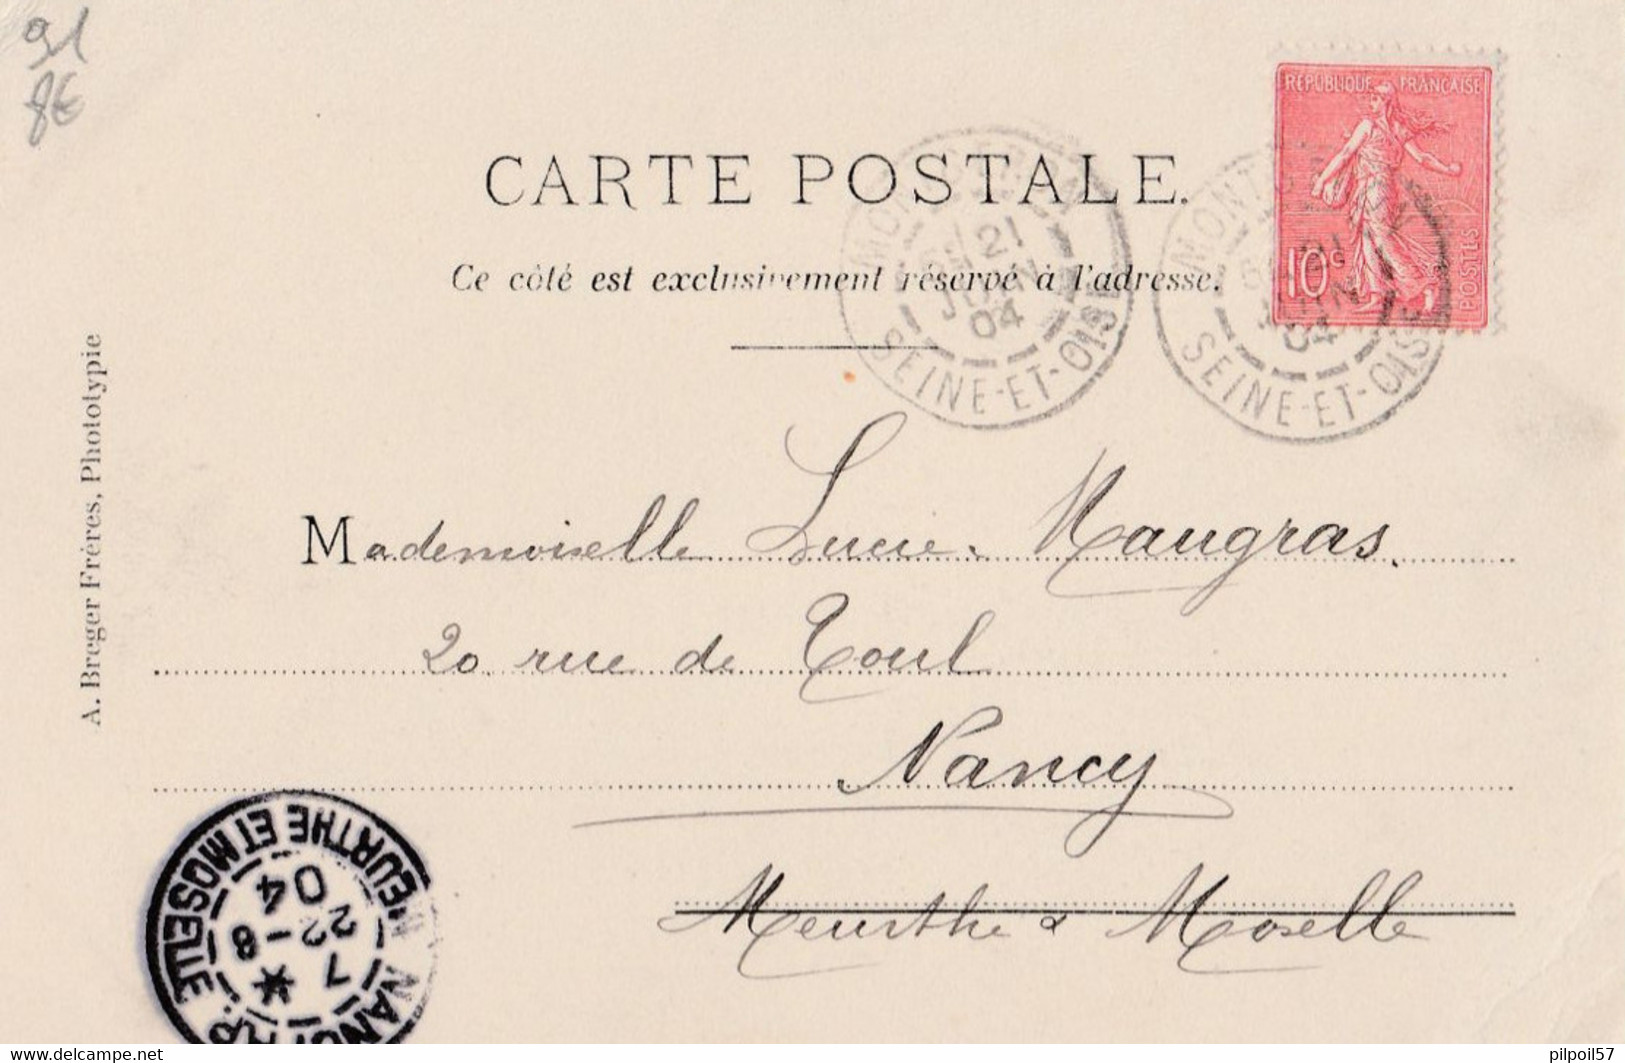 91
8€
RÉPUBLIQUE FRANÇAISE
10c
POSTES
CARTE POSTALE.
Ce côté est exclusivement réservé à l'adresse.
21
JUIN
04
SEINE-ET-OISE
JUIN
04
SEINE-ET-OISE
A. Breger Frères, Phototypie
Mademoiselle Lucie Maugras.
20 rue de Toul
Nancy
Meurthe & Moselle
NANCY
MEURTHE ET MOSELLE
7
22-8
04
www.delcampe.net
pilpoil57